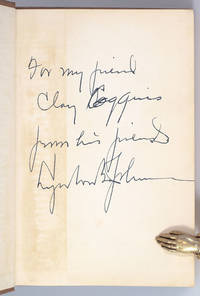 For my friend
Clay Coggins
from his friend
Lyndon B. Johnson